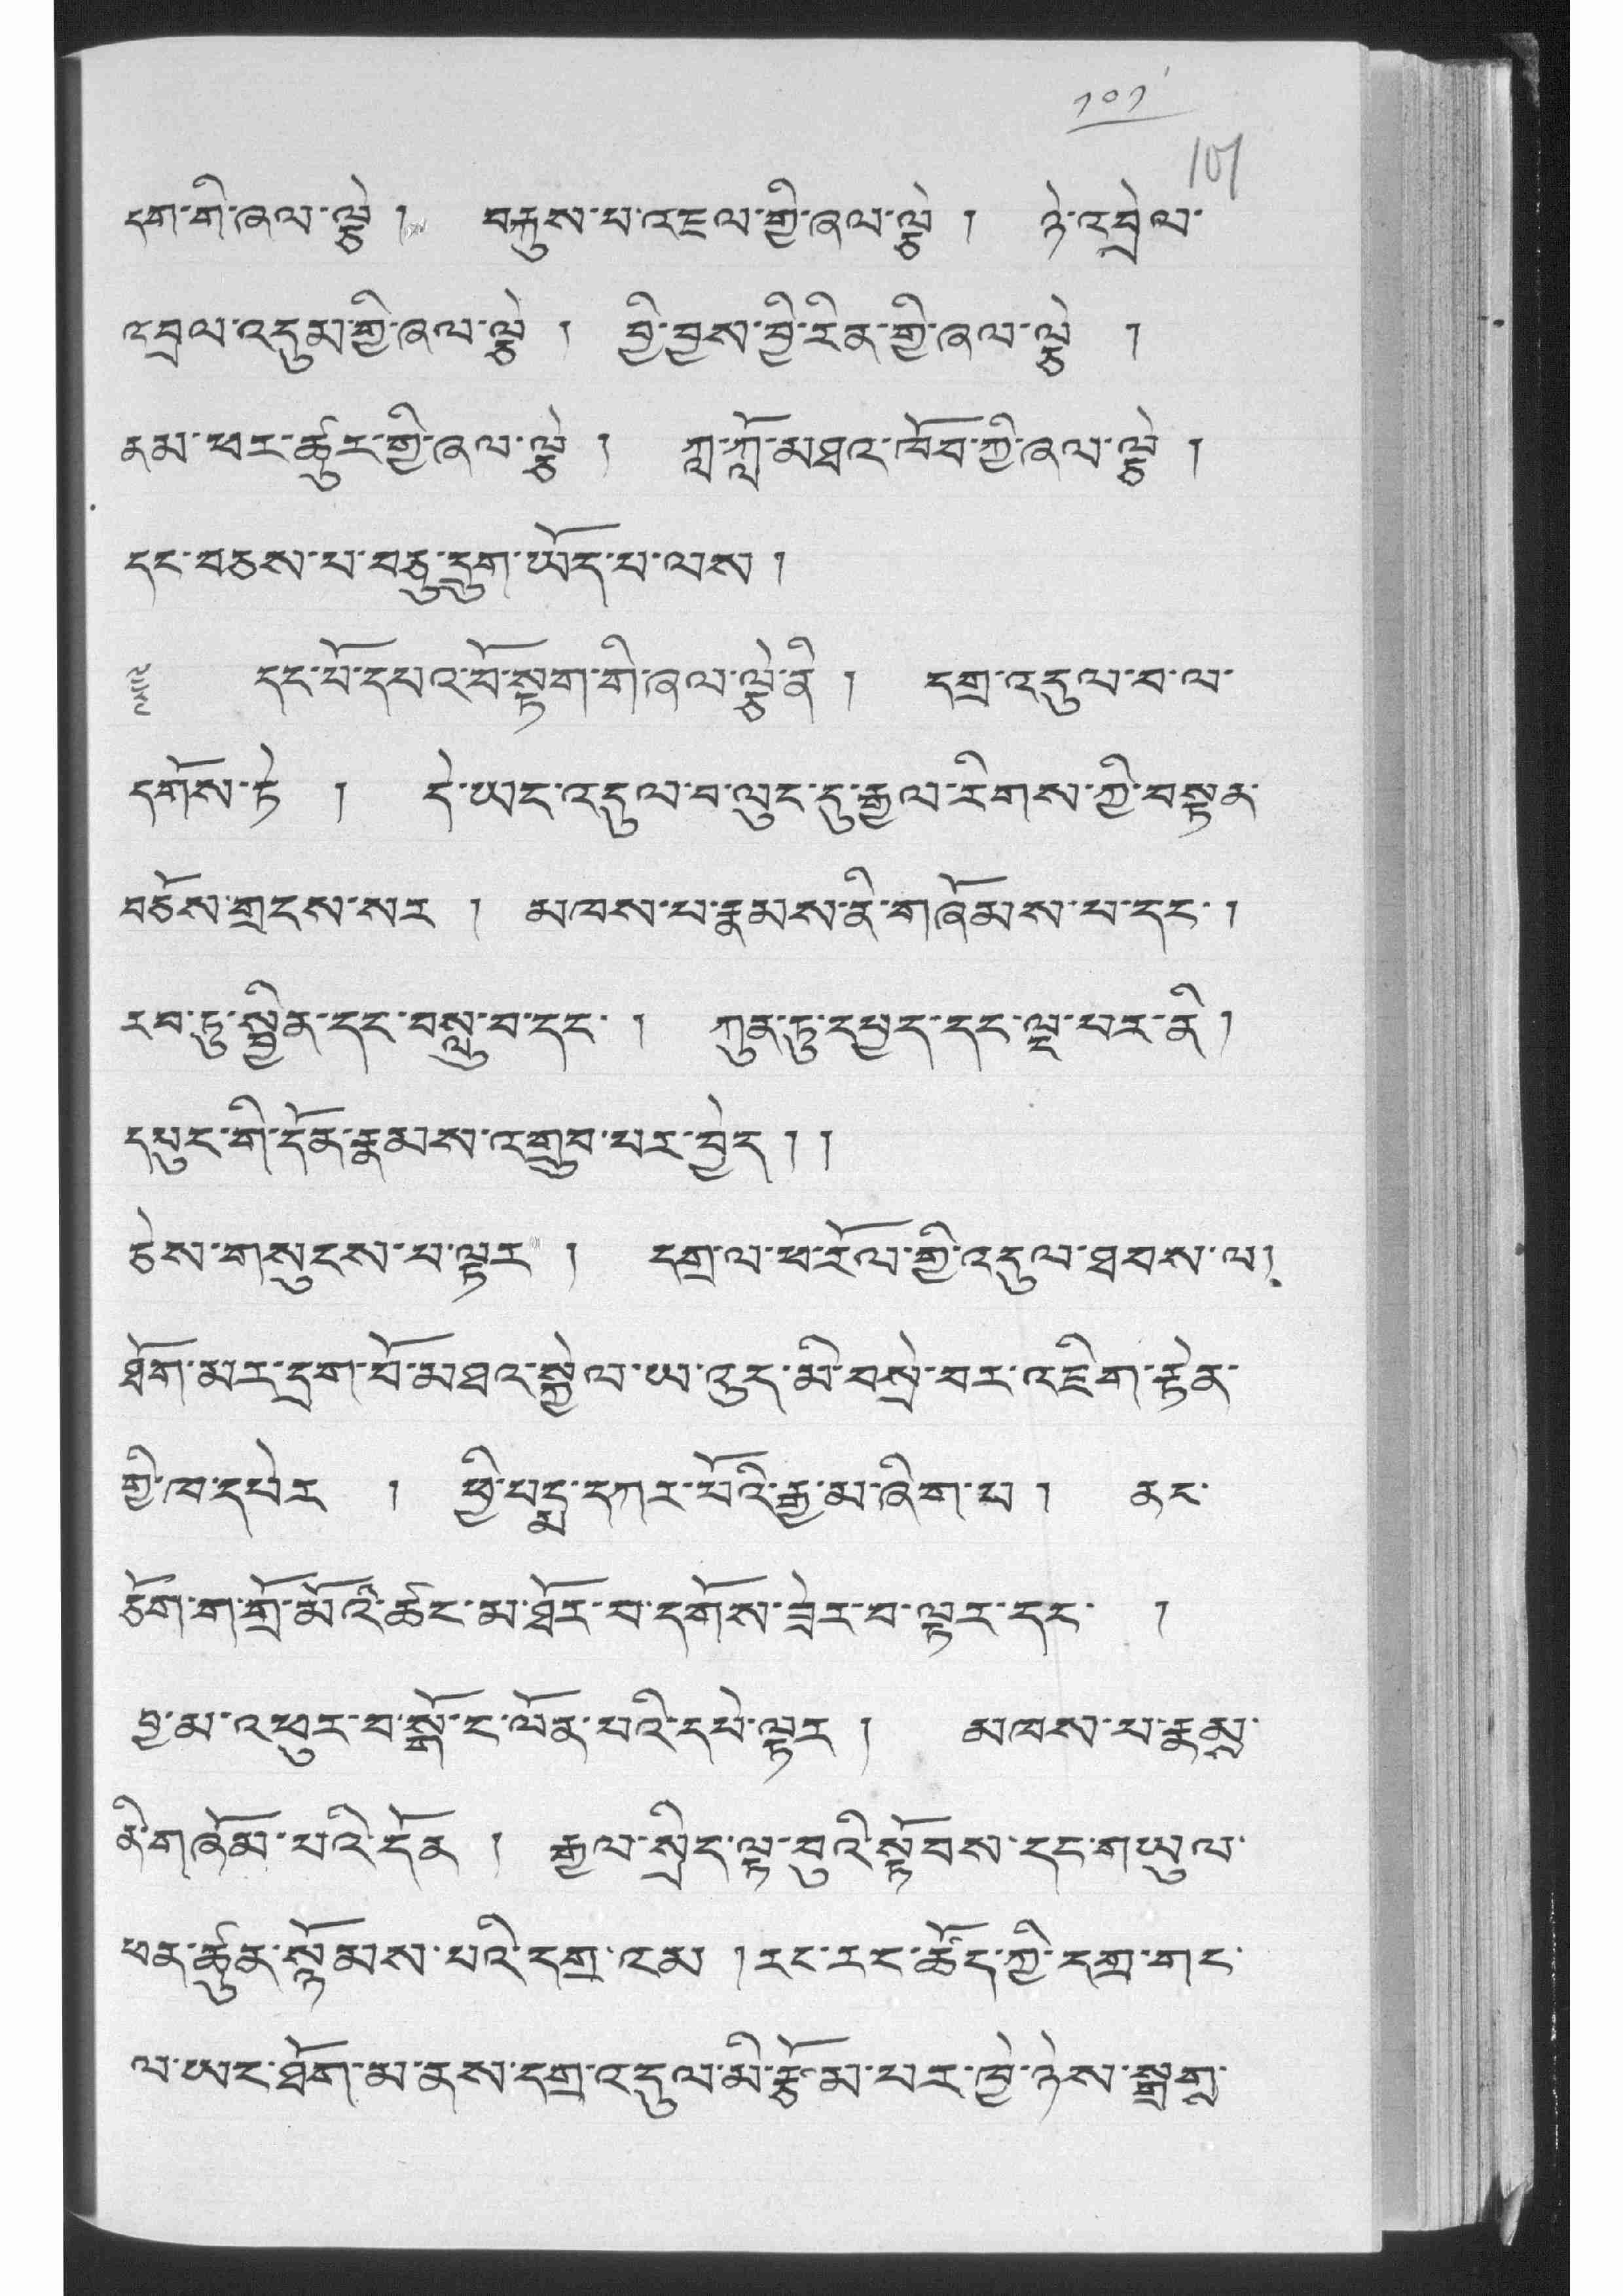 ༡༠༡
101
དག་གི་ཞལ་ལྕེ། བརྐུས་པ་འཇལ་གྱི་ཞལ་ལྕེ། ཉེ་འབྲེལ་
འབྲལ་འདུམ་གྱི་ཞལ་ལྕེ། བྱི་བྱས་བྱི་རིན་གྱི་ཞལ་ལྕེ།
ནམ་ཕར་ཚུར་གྱི་ཞལ་ལྕེ། ཀླ་ཀློ་མཐའ་ཁོབ་ཀྱི་ཞལ་ལྕེ།
དང་བཅས་པ་བཅུ་དྲུག་ཡོད་པ་ལས།
དང་པོ་དཔའ་བོ་སྟག་གི་ཞལ་ལྕེ་ནི། དགྲ་འདུལ་བ་ལ་
དགོས་ཏེ། དེ་ཡང་འདུལ་བ་ལུང་དུ་རྒྱལ་རིགས་ཀྱི་བསྟན་
བཅོས་གྲངས་སར། མཁས་པ་རྣམས་ནི་གཞོམས་པ་དང་།
རབ་ཏུ་སྦྱིན་དང་བསླུ་བ་དང་། ཀུན་ཏུ་དཔྱད་དང་ལྔ་པར་ནི།
དཔུང་གི་དོན་རྣམས་འགྲུབ་པར་བྱེད།།
ཅེས་གསུངས་པ་ལྟར། དགྲ་ལ་ཕ་རོལ་གྱི་འདུལ་ཐབས་ལ།
ཐོག་མར་དྲག་པོ་མཐའ་སྐྱེལ་ཡ་འུད་མི་བསྲེ་བར་འཇིག་རྟེན་
གྱི་ཁ་དཔེར། ཕྱི་པདྨ་དཀར་པོའི་རྒྱ་མ་ཞིག་པ། ནང་
ཅོག་ག་གྲོ་མོའི་ཚང་མ་ཐོར་བ་དགོས་ཟེར་བ་ལྟར་དང་།
བྱ་མ་འཕུར་བ་སྒོ་ང་ལོན་པའི་དཔེ་ལྟར། མཁས་པ་རྣམས་
ནི་གཞོམ་པའི་དོན། རྒྱལ་སྲིད་ལྟ་བུའི་སྟོབས་དང་གཡུལ་
ཕན་ཚུན་སྙོམས་པའི་དགྲ་འམ། རང་རང་ཚོད་ཀྱི་དགྲ་གང་
ལ་ཡང་ཐོག་མ་ནས་དགྲ་འདུལ་མི་རྩོམ་པར་ཁྱེ་ཉེས་སྒྲིག